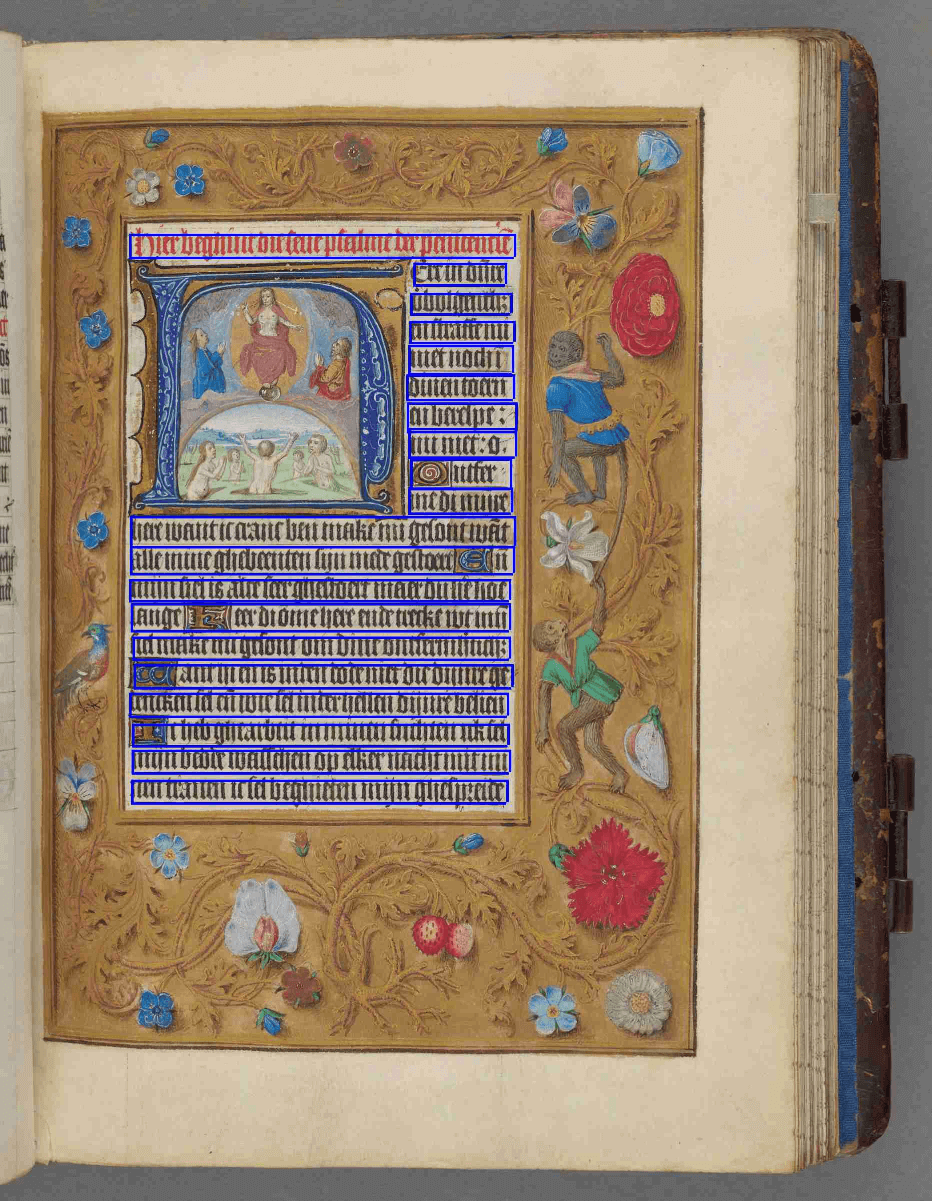 Hier beghīnē die seuē psalmē der penitenciē
Ere in dinre
ubolgentheit
en straffe mi
niet noch ī
dinen toern
en berespe :
mi niet : o
Ontfer
me di mijnre
here want ic cranc ben make mi gesont wāt
alle mine ghebeenten sijn mede gestoert En
mijn siel is alte seer ghestoert maer du here hoe
lange Keer di ome here ende trecke wt mijn
siel make mi gesont om dine ontfermherticheit
Want hi en is inden dode niet die dijnre ge
dencken sal en wie sal inder hellen dijnre belien
Ic heb ghearbeit in minen suchten ic sel
mijn bedde wasschen op elker nacht mit mi
nen tranen ic sel beghieten mijn ghespreide